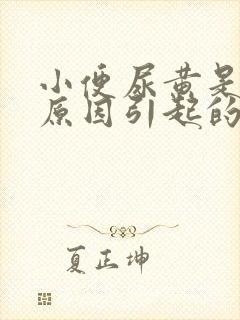 小便尿黄是
原因引起的
夏正坤